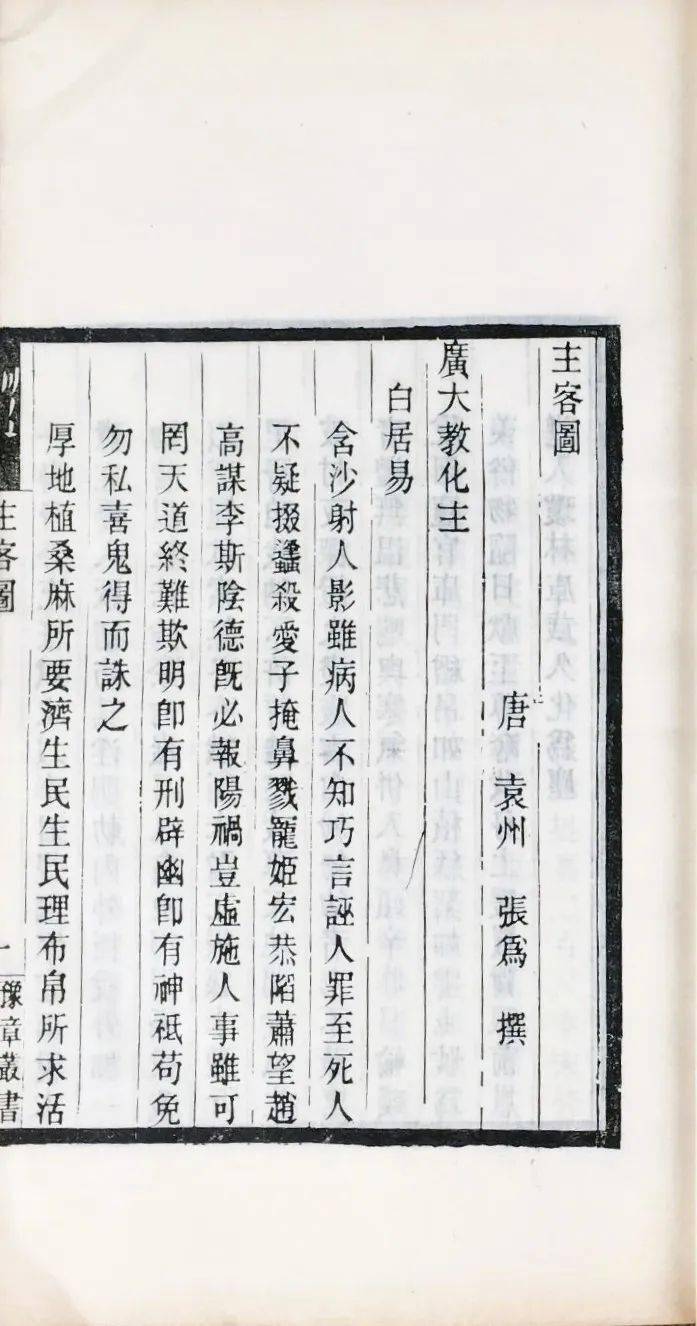 主客圖
唐 袁州 張爲 撰
廣大教化主
白居易
含沙射人影雖病人不知巧言誣人罪至死人
不疑掇蠭殺愛子掩鼻戮寵姬宏恭陷蕭望趙
高謀李斯陰德旣必報陽禍豈虛施人事雖可
罔天道終難欺明卽有刑辟幽卽有神祗苟免
勿私喜鬼得而誅之
厚地植桑麻所要濟生民生民理布帛所求活
主客圖
一
豫章叢書